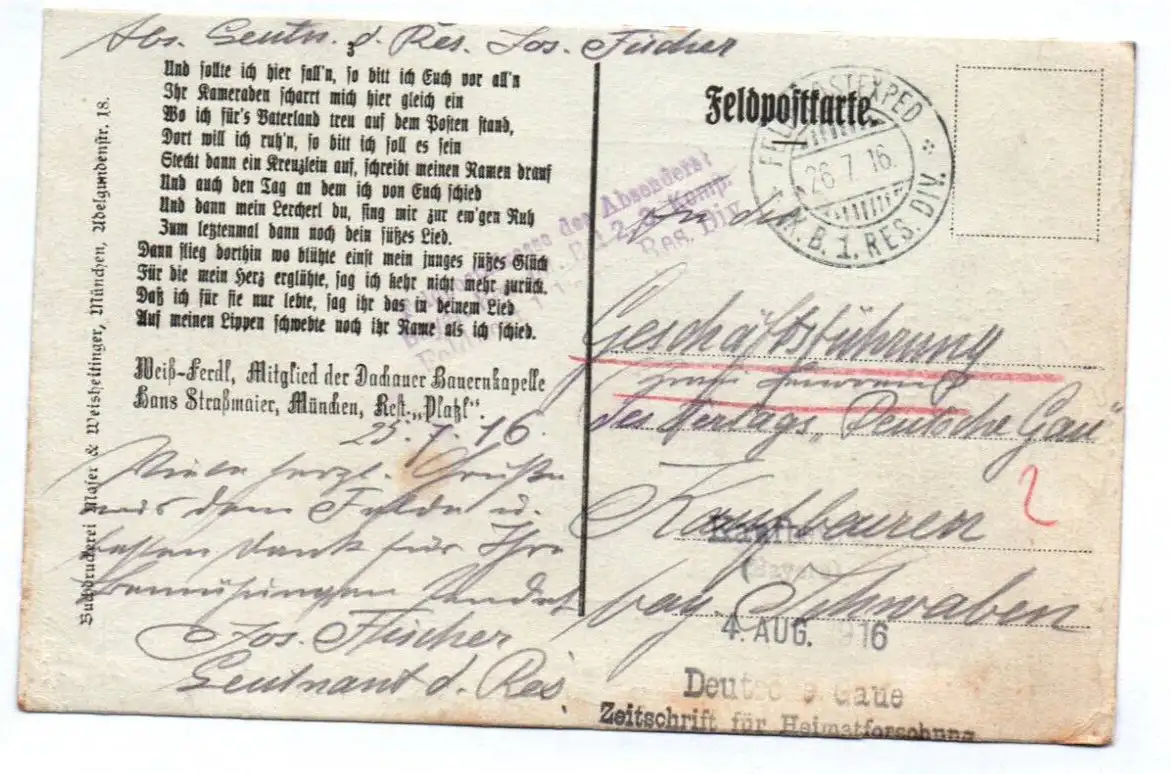 Abs. Leutn. d. Res. Jos. Fischer
3
Und sollte ich hier fall'n, so bitt ich Euch vor all'n
Ihr Kameraden scharrt mich hier gleich ein
Wo ich für's Vaterland treu auf dem Posten stand,
Dort will ich ruh'n, so bitt ich soll es sein
Steckt dann ein Kreuzlein auf, schreibt meinen Namen drauf
Und auch den Tag an dem ich von Euch schied
Und dann mein Lercherl du, sing mir zur ew'gen Ruh
Zum letztenmal dann noch dein süßes Lied.
Dann flieg dorthin wo blühte einst mein junges süßes Glück
Für die mein Herz erglühte, sag ich kehr nicht mehr zurück.
Daß ich für sie nur lebte, sag ihr das in deinem Lied
Auf meinen Lippen schwebte noch ihr Name als ich schied.
Weiß-Ferdl, Mitglied der Dachauer Bauernkapelle
Hans Straßmaier, München, Rest. „Platzl“.
25.7.16.
Vielen herzl. Grüße
aus dem Felde u.
besten Dank für Ihre
Bemühungen sendet
Jos. Fischer
Leutnant d. Res.
Buchdruckerei Majer & Weisheitinger, München, Adelgundenstr. 18.
Feldpostkarte.
FELDPOSTEXPED
26.7.16.
K.B.1.RES.DIV.
des Absenders:
2. Komp.
Res. Div.
An die
Geschäftsführung
des Verlags „Deutsche Gaue“
Kaufbeuren
2
bay. Schwaben
4. AUG. 1916
Deutsche Gaue
Zeitschrift für Heimatforschung